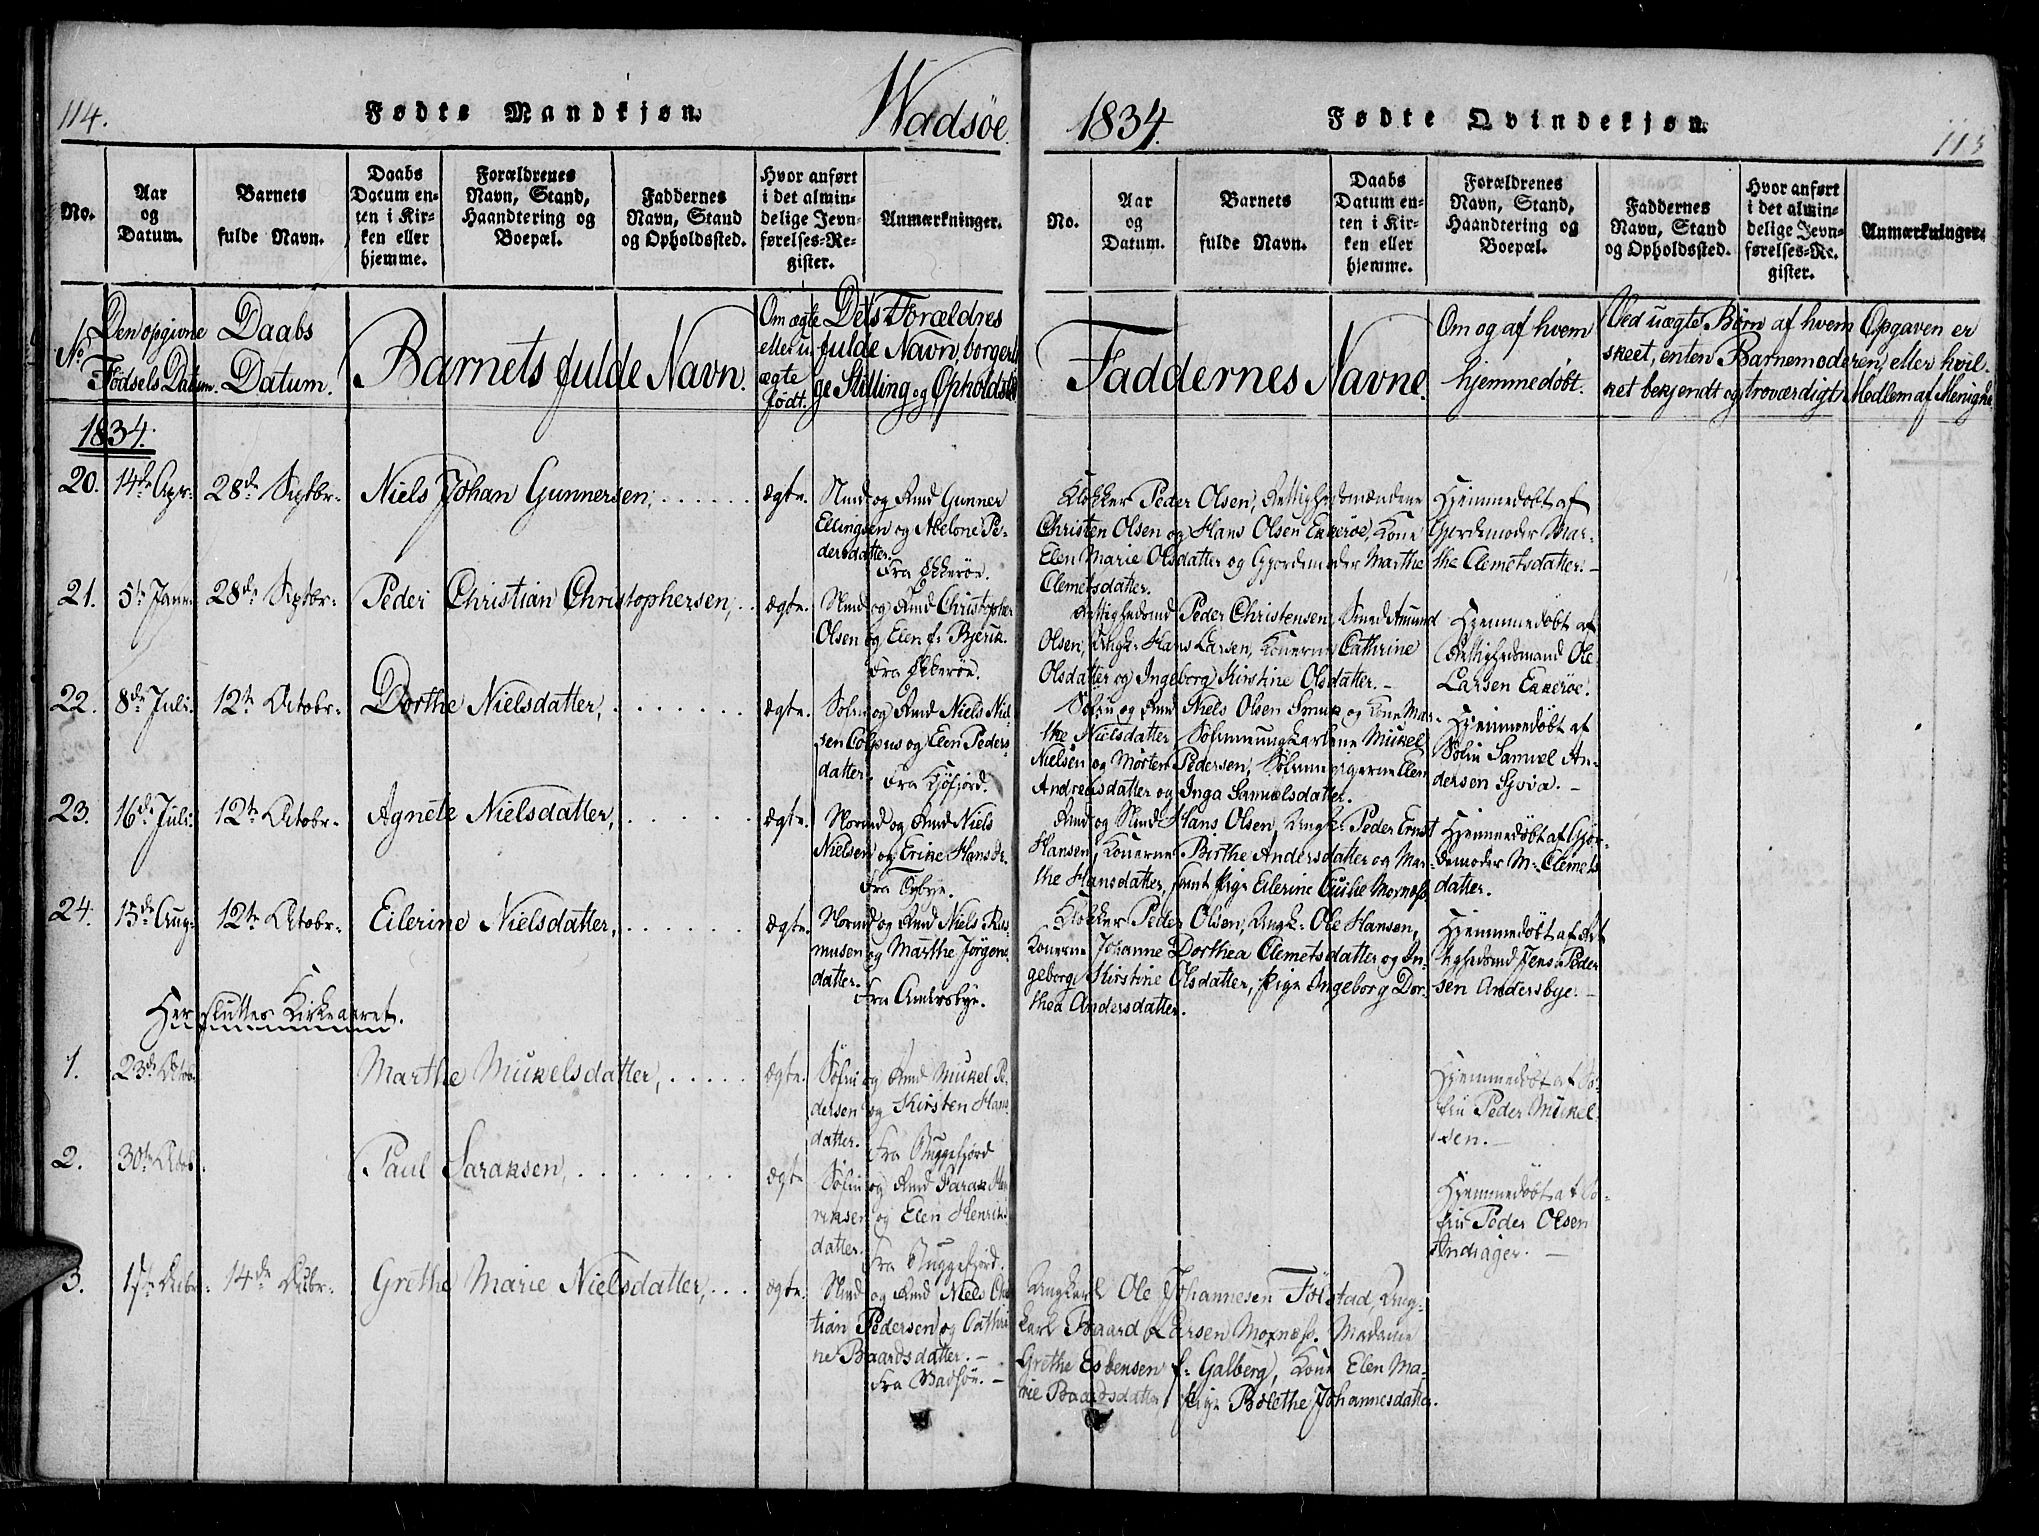 114.
Fødte Mandkjøn.
Wadsøe
1834.
Fødte Qvindekjøn.
115
No.
Aar
og
Datum.
Barnets
fulde Navn.
Daabs
Datum en-
ten i Kir-
ken eller
hjemme.
Forældrenes
Navn, Stand,
Haandtering og
Boepæl.
Faddernes
Navn, Stand
og Opholdssted.
Hvor anført
i det almin-
delige Jevn-
førelses-Re-
gister.
Anmærkninger.
No.
Aar
og
Datum.
Barnets
fulde Navn.
Daabs
Datum en-
ten i Kir-
ken eller
hjemme.
Forældrenes
Navn, Stand,
Haandtering og
Boepæl.
Faddernes
Navn, Stand
og Opholdssted.
Hvor anført
i det almin-
delige Jevn-
førelses-Re-
gister.
Anmærkninger.
No.
Den opgivne
Fødsels Datum.
Daabs
Datum.
Barnets fulde Navn.
Om ægte
eller u-
ægte
født.
Dets Forældres
fulde Navn, borgerli-
ge Stilling og Opholdsted
Faddernes Navne.
Om og af hvem
hjemmedøbt.
Ved uægte Børn af hvem Opgaven er
skeet, enten Barnemoderen, eller hvil-
ket bekjendt og troværdigt Medlem af Menighe
1834.
20. 14de Apr. 28de Septbr. Niels Johan Gunnersen, ægte.
Nmd og Kmd Gunner
Ellingsen og Abelone Pe-
dersdatter.
Fra Ekkerøe.
Klokker Peder Olsen, Rettighedsmændene
Christen Olsen og Hans Olsen Ekkerøe, Kone
Elen Marie Olsdatter og Gjordemoder Marthe
Clemetsdatter.
Hjemmedøbt af
Gjordemoder Mar-
the Clemetsdatter.
21. 5te Janr. 28de Septbr. Peder Christian Christophersen, ægte.
Nmd og Kmd Christopher
Olsen og Elen f: Bjerik.
Fra Ekkerøe.
Rettighedsmd Peder Christensen, Smed Amund
Olsen, Ungk: Hans Larsen, Konerne Cathrine
Olsdatter og Ingeborg Kirstine Olsdatter.
Hjemmedøbt af
Rettighedsmand Ole
Larsen Ekkerøe.
22. 8de Juli. 12te Octobr. Dorthe Nielsdatter, ægte.
Søfin og Kmd Niels Niel-
sen Colpus og Elen Peders-
datter.
Fra Kjøfjord.
Søfin og Kmd Niels Olsen Smuk og Kone Mar-
the Nielsdatter, Søfinneungkarlene Mikel
Nielsen og Morten Pedersen, Søfinnepigerne Elen
Andreasdatter og Inga Samuelsdatter.
Hjemmedøbt af
Søfin Samuel An-
dersen
23. 16de Juli. 12te Octobr. Agnete Nielsdatter, ægte.
Normd og Kmd Niels
Nielsen og Erike Hansdr.
Fra
Kmd og Nmd Hans Olsen, Ungk: Peder Ernst
Hansen, Konerne Birthe Andersdatter og Mar-
the Hansdatter, samt Pige Eilerine Cecilie
Hjemmedøbt af Gjor-
demoder M: Clemets
datter.
24. 15de Aug. 12te Octobr. Eilerine Nielsdatter, ægte.
Normd og Kmd Niels Ras-
musen og Marthe Jørgens-
datter.
Fra Andersbye.
Klokker Peder Olsen, Ungk: Ole Hansen,
Konerne Johanne Dorthea Clemetsdatter og In-
geborg Kirstine Olsdatter, Pige Ingeborg Dor-
thea Andersdatter.
Hjemmedøbt af Ret
tighedsmd Jens Peder
sen Andersbye.
Her sluttes Kirkeaaret.
1. 23de Octob. Marthe Mikelsdatter, ægte.
Søfin og Kmd Mikel Pe-
dersen og Kirsten Hans
datter.
Fra Buggefjord
Hjemmedøbt af Sø-
fin Peder Mikel
sen.
2. 30te Octob. Paul Saraksen, ægte
Søfin og Kmd Sarak Hen
riksen og Elen Henriks
datter.
Fra Buggefjord.
Hjemmedøbt af Sø-
fin Peder Olsen
Andiager.
3. 1ste Decbr. 14de Decbr. Grethe Marie Nielsdatter, ægte.
Nmd og Kmd Niels Chri
stian Pedersen og Cathri
ne Baardsdatter.
Fra Vadsøe.
Ungkarl Ole Johannesen Følstad, Ung-
karl Baard Larsen Moxnæss. Madame
Grethe Esbensen f: Galberg, Kone Elen Ma-
rie Baardsdatter, Pige Bolethe Johannesdatter.